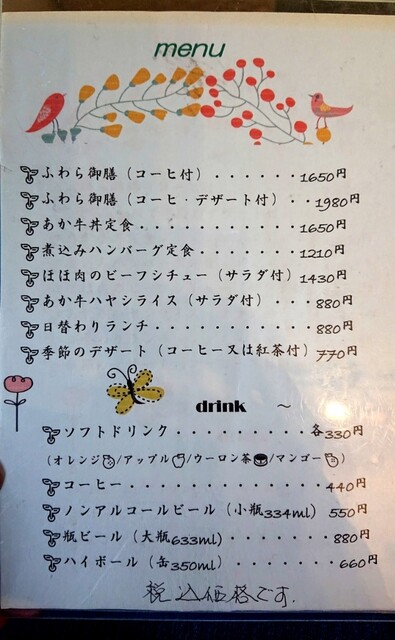 menu
ふわら御膳（コーヒ付）・・・・・・1650円
ふわら御膳（コーヒ・デザート付）・・1980円
あか牛丼定食・・・・・・・・・・・1650円
煮込みハンバーグ定食・・・・・・・1210円
ほほ肉のビーフシチュー（サラダ付）1430円
あか牛ハヤシライス（サラダ付）・・・880円
日替わりランチ・・・・・・・・・・・880円
季節のデザート（コーヒー又は紅茶付）770円
drink ～
ソフトドリンク・・・・・・・・・・各330円
（オレンジ/アップル/ウーロン茶/マンゴー）
コーヒー・・・・・・・・・・・・・・440円
ノンアルコールビール（小瓶334ml）550円
瓶ビール（大瓶633ml）・・・・・・・880円
ハイボール（缶350ml）・・・・・・・660円
税込価格です.